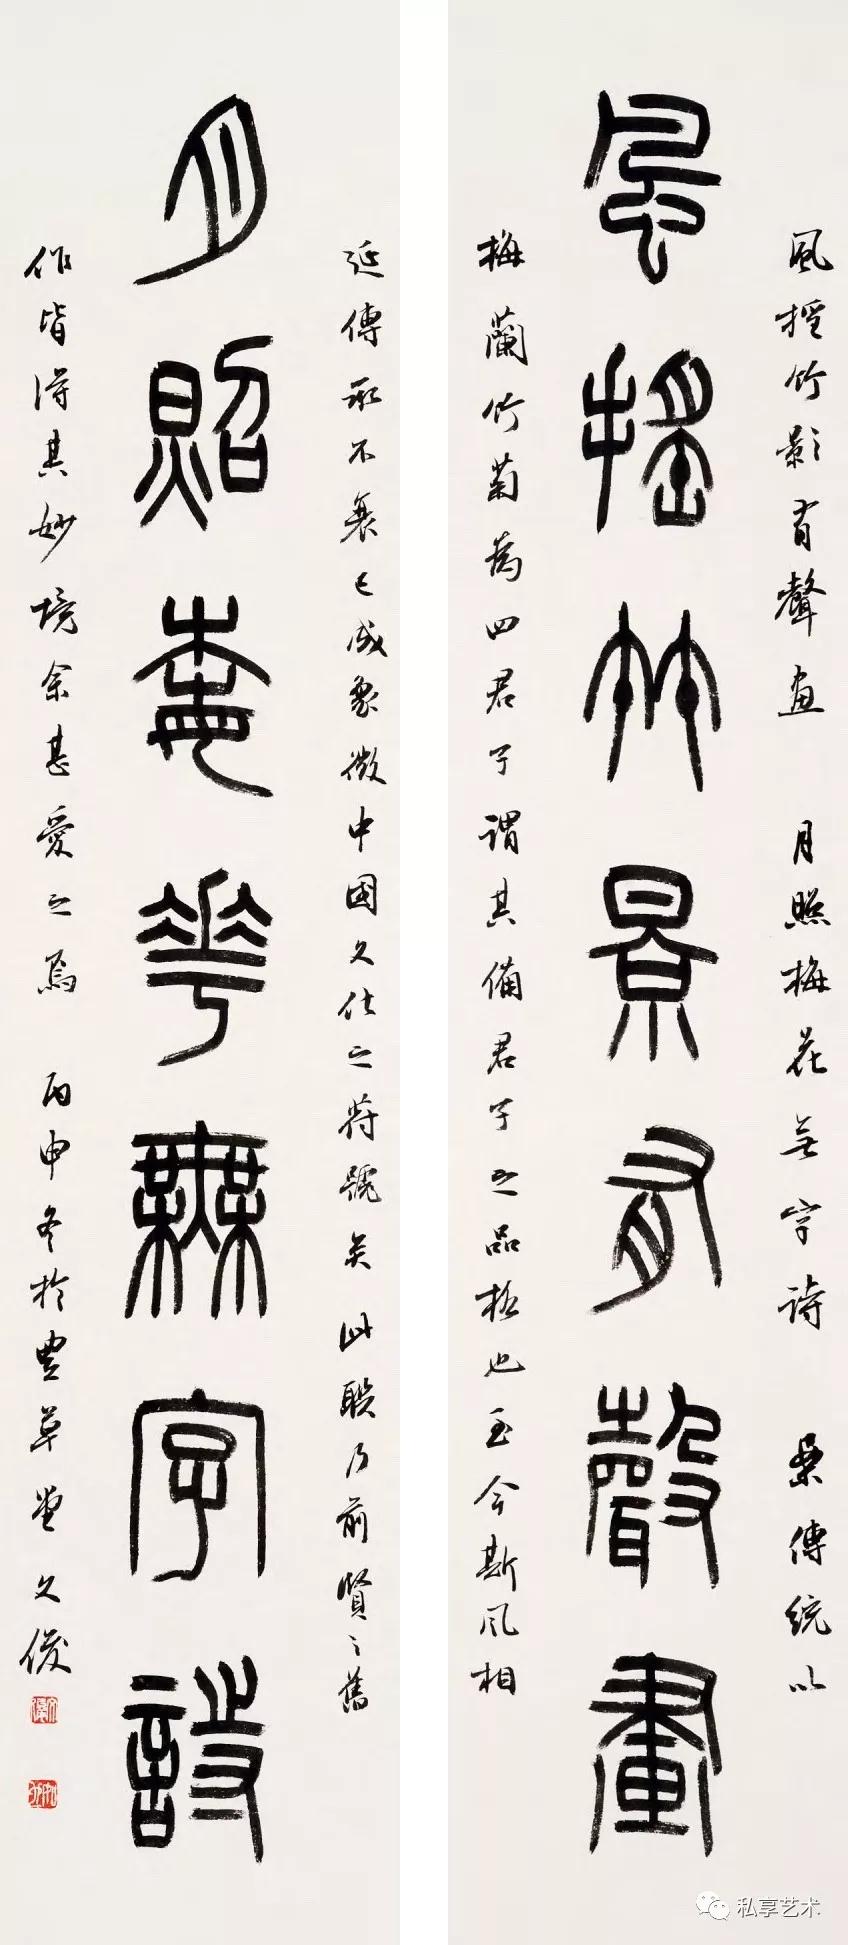 風搖竹影有聲画 月照梅花無字詩 案傳統以
風搖竹景有聲畫
梅蘭竹菊為四君子謂其備君子之品格也至今斯風相
延傳承不衰已成象徵中國文化之符號矣 此聯乃前賢之舊
月照梅花無字詩
作皆得其妙境余甚愛之焉 丙申冬於豐草堂文俊
私享艺术